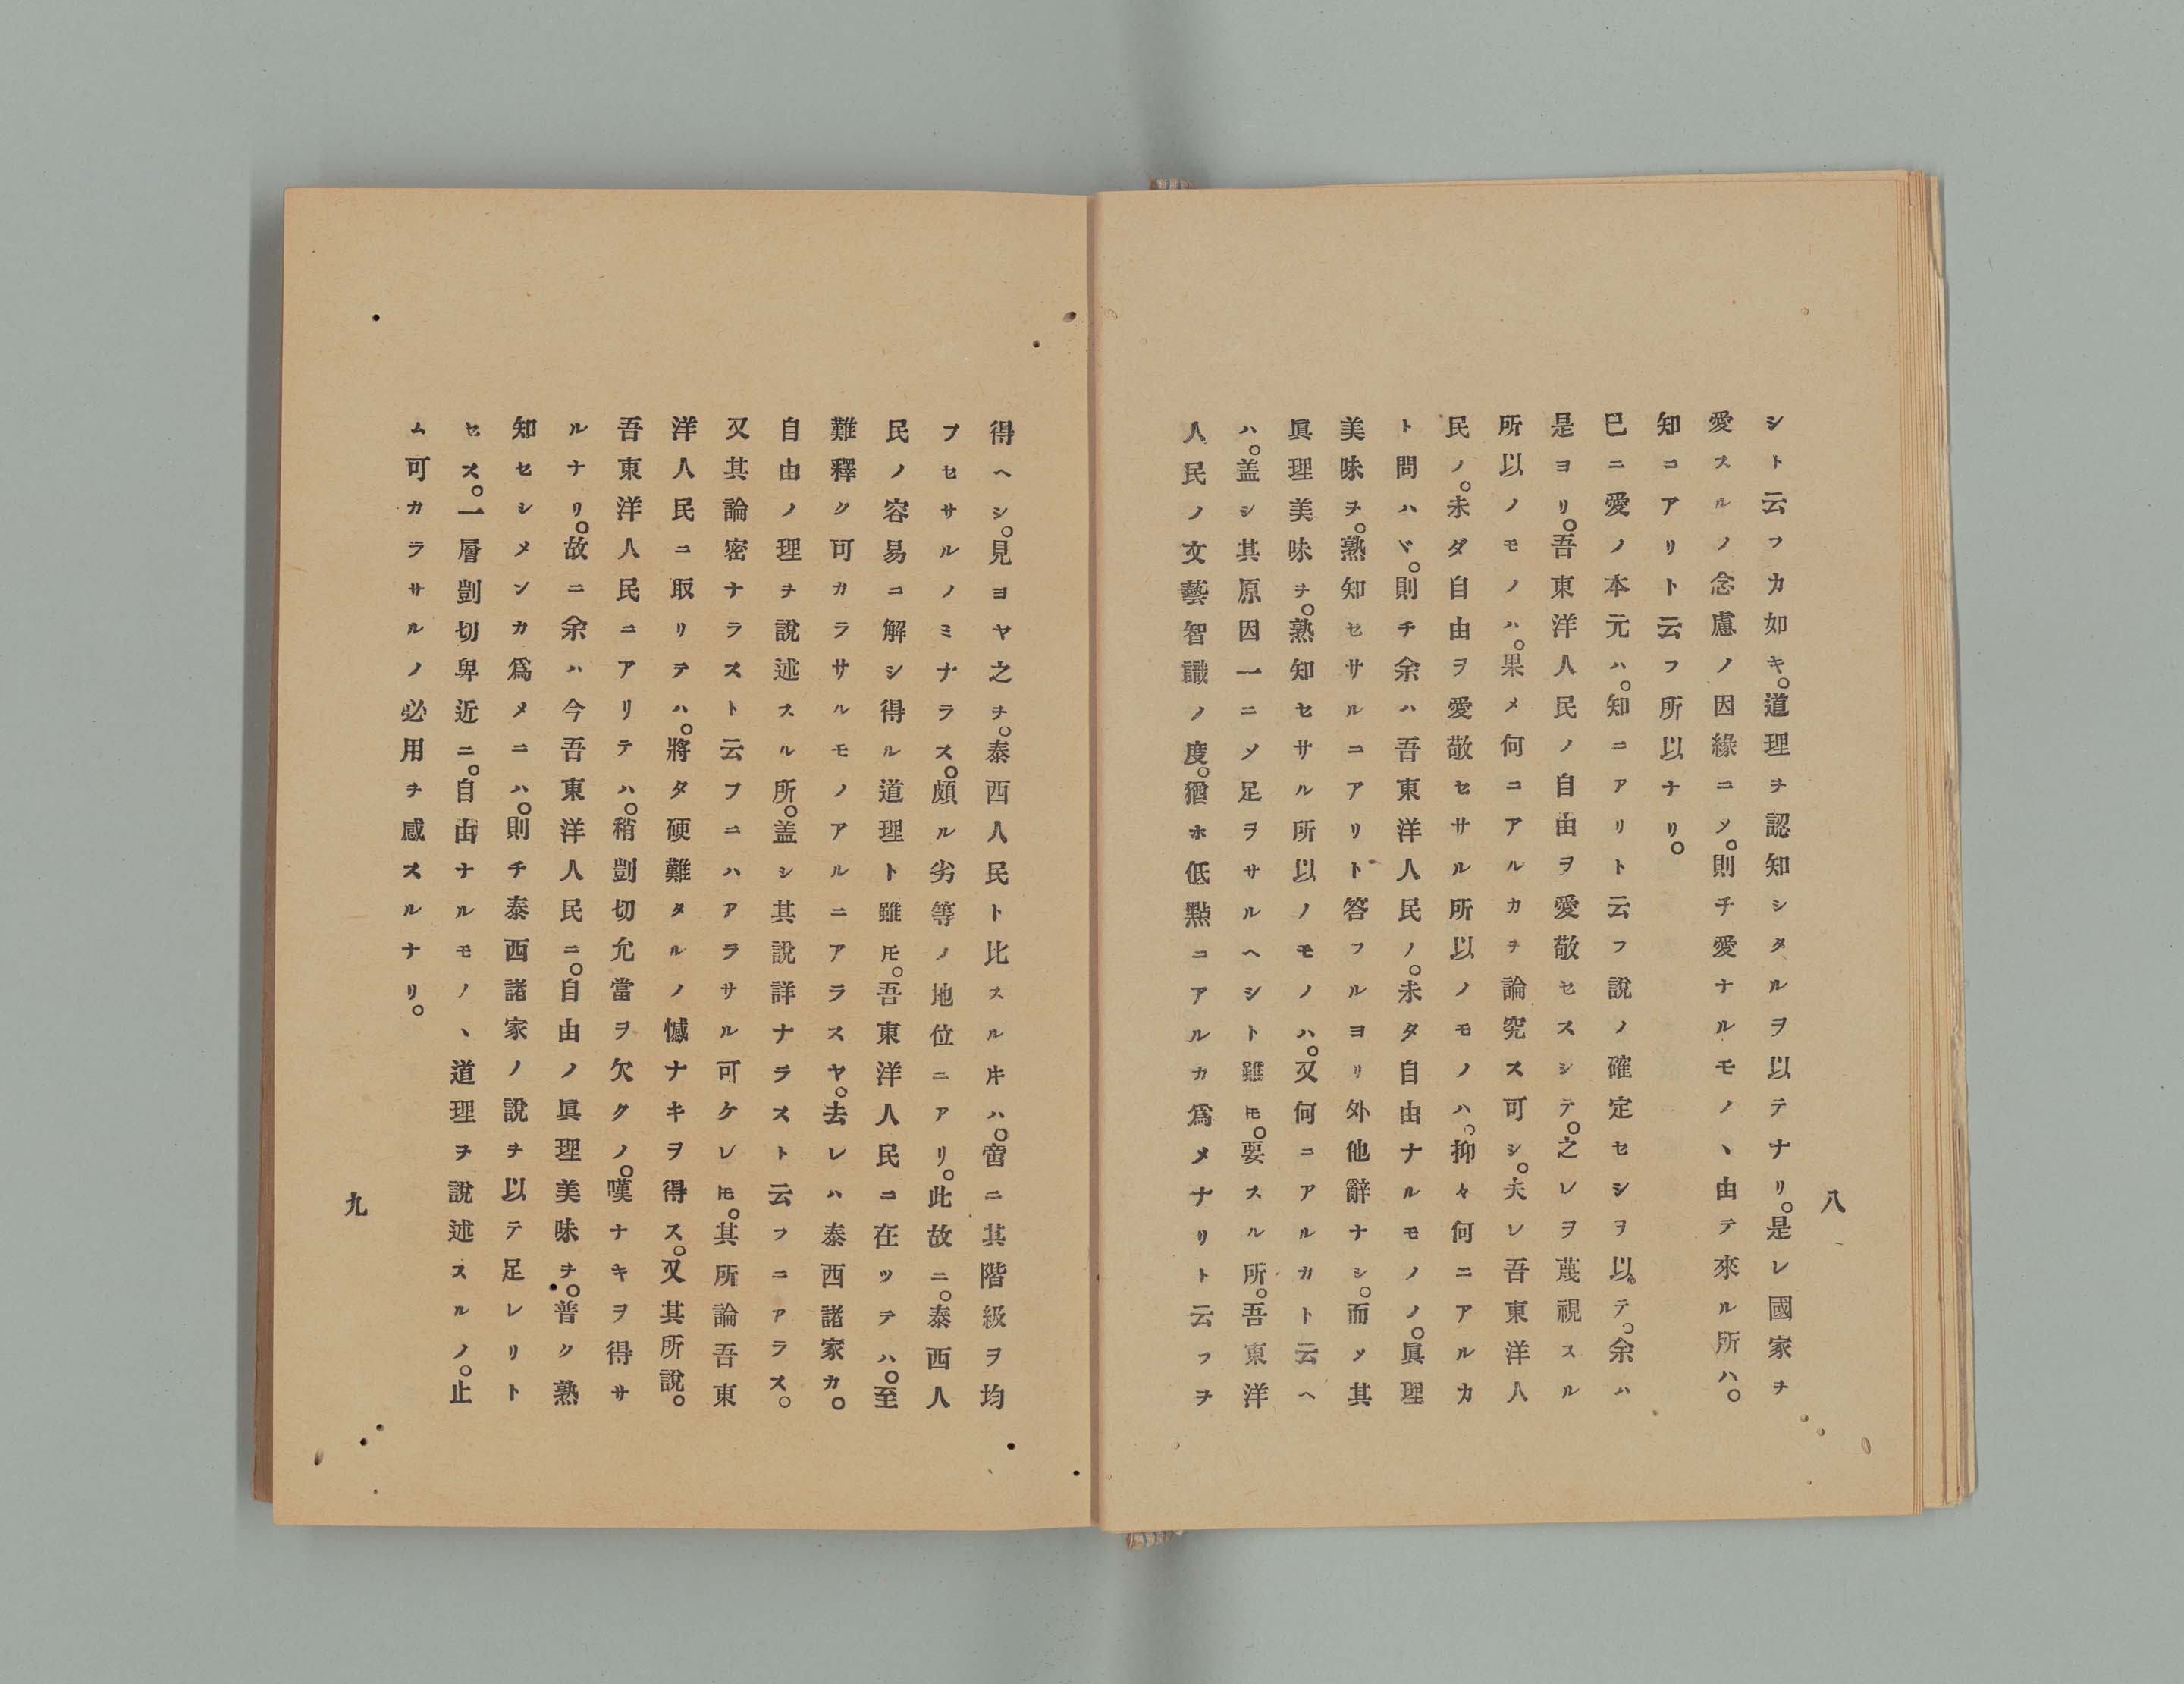 八
シト云フカ如キ。道理ヲ認知シタルヲ以テナリ。是レ國家ヲ
愛スルノ念慮ノ因緣ニメ。則チ愛ナルモノヽ由テ來ル所ハ。
知ニアリト云フ所以ナリ。
已ニ愛ノ本元ハ。知ニアリト云フ說ノ確定セシヲ以。テ。余ハ
是ヨリ。吾東洋人民ノ自由ヲ愛敬セスシテ。之レヲ蔑視スル
所以ノモノハ。果メ何ニアルカヲ論究ス可シ。夫レ吾東洋人
民ノ。未ダ自由ヲ愛敬セサル所以ノモノハ。抑々何ニアルカ
ト問ハヾ。則チ余ハ吾東洋人民ノ。未タ自由ナルモノノ。眞理
美味ヲ。熟知セサルニアリト答フルヨリ外他辭ナシ。而メ其
眞理美味ヲ。熟知セサル所以ノモノハ。又何ニアルカト云ヘ
ハ。盖シ其原因一ニメ足ヲサルヘシト雖𪜈。要スル所。吾東洋
人民ノ文藝智識ノ度。猶ホ低點ニアルカ爲メナリト云フヲ
得ヘシ。見ヨヤ之ヲ。泰西人民ト比スルキハ。啻ニ其階級ヲ均
フセサルノミナラス。頗ル劣等ノ地位ニアリ。此故ニ。泰西人
民ノ容易ニ解シ得ル道理ト雖𪜈。吾東洋人民ニ在ツテハ。至
難釋ク可カラサルモノノアルニアラスヤ。去レハ泰西諸家カ。
自由ノ理ヲ說述スル所。盖シ其說詳ナラスト云フニアラス。
又其論密ナラスト云フニハアラサル可ケレ𪜈。其所論吾東
洋人民ニ取リテハ。將タ硬難タルノ憾ナキヲ得ス。又其所說。
吾東洋人民ニアリテハ。稍剴切允當ヲ欠クノ。嘆ナキヲ得サ
ルナリ。故ニ余ハ今吾東洋人民ニ。自由ノ眞理美味ヲ。普ク熟
知セシメンカ爲メニハ。則チ泰西諸家ノ說ヲ以テ足レリト
セス。一層剴切卑近ニ。自由ナルモノヽ道理ヲ說述スルノ。止
ム可カラサルノ必用ヲ感スルナリ。
九